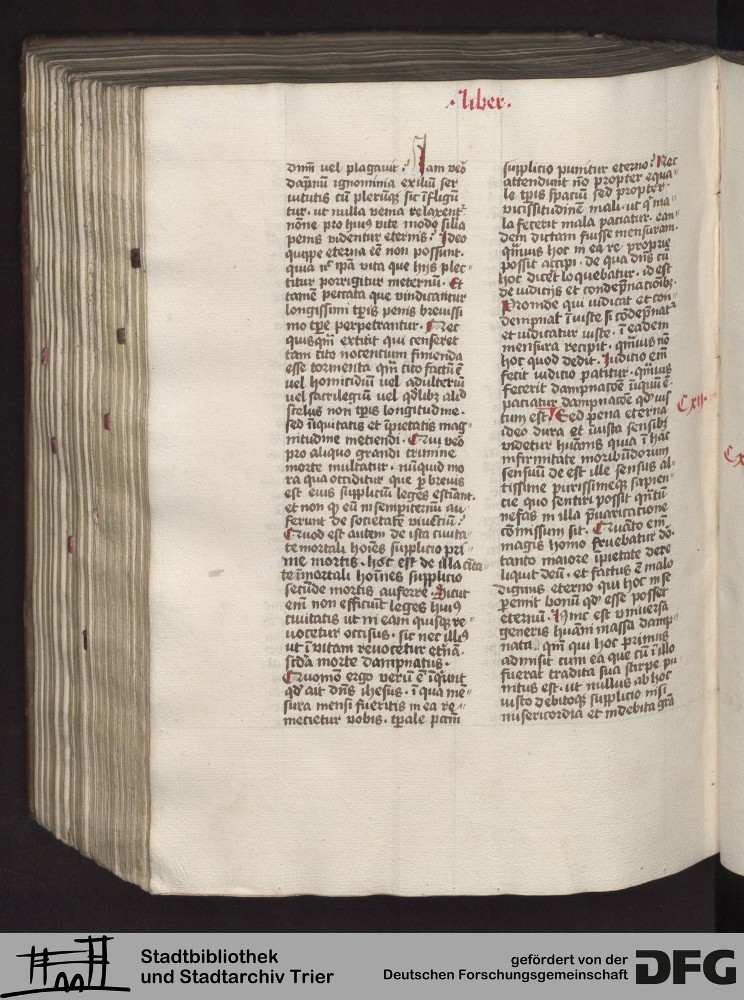 ·liber·
dnm̄ vel plagauit? Iam veo̅
dāpnū ignominia exiliū ser
uitutis cū plerūq̨ sic īfligū
tur · ut nulla venia relaxent᷑
nōne pro huiꝰ vite modo silia
penis videntur eternis? Ideo
quippe eterna eē non possunt ·
quia nc̄ ip̄a vita que hijs plec
titur porrigitur ineternū · Et
tamē peccata que vindicantur
longissimi tp̄is penis breuissi
mo tp̄e perpetrantur · Nec
quisqm̄ extitit qui censeret
tam cito nocentium finienda
esse tormenta qm̄ cito factū ē
vel homicidiū vel adulteriū
vel sacrilegiū vel qd̄libʒ alid
scelus non tp̄is longitudine ·
sed iniquitatis et īpietatis mag
nitudine metiendi · Qui veo̅
pro aliquo grandi crimine
morte multatur · nūquid mo
ra qua occiditur que ꝑbreuis
est eius suppliciū leges estimant ·
et non qꝫ eū in sempiternū au
ferunt de societate viuētiū?
Quod est autem de ista ciuita
te mortali hoīes supplicio pri
me mortis · hoc est de illa ciuita
te īmortali hoīnes supplicio
secūde mortis auferre · Sicut
em̄ non efficiūt leges huiꝰ
ciuitatis ut in eam quisq̨ re
uocetur occisus · sic nec illiꝰ
ut ī vitam reuocetur etn̄ā ·
scd̄a morte dampnatus ·
Quomō ergo verū ē īquiūt
qd̄ ait dn̄s ihesus · ī qua mē
sura mensi fueritis in ea re
mecietur vobis · tp̄ale pctm̄
supplicio punitur eterno? Nec
attendunt nō propter equa
le tp̄is spaciū sed propter
vicissitudinē mali · ut q̄ ma
la fecerit mala paciatur · ean
dem dictam fuisse mensuram ·
qm̄uis hoc in ea re proprie
possit accipi · de qua dn̄s cū
hoc dicet loquebatur · id est
de iudicijs et condēpnacioībꝰ ·
Proinde qui iudicat et con
dempnat īiuste si cōdēpnat᷑
et iudicatur iuste · ī eadem
mensura recipit · qm̄uis nō
hoc quod dedit · Iudicio em̄
fecit iudicio patitur · qm̄uis
fecerit dampnacōe īiqui ē ·
paciatur dampnacōe qd̄ ius
tum est · Sed pena eterna
Cxij·
ideo dura et īiusta sensibꝫ
videtur huānis quia ī hac
infirmitate moribūdorum
sensuū de est ille sensus al
tissime purissimeq̨ sapien
cie quo sentiri possit qn̄tū
nefas in illa p̄uaricatione
cōmissum sit · Quāto em̄
magis homo fruebatur dō ·
tanto maiore īpietate dere
liquit deū · et factus ē malo
dignus eterno qui hoc in se
ꝑemit bonū qd̄ esse posset
eternū · Hinc est vniuersa
generis huāni massa damp
nata · qm̄ qui hoc primus
admisit cum ea que cū ī illo
fuerat tradita sua stirpe pu
nitus est · ut nullus ab hoc
iusto debitoq̨ supplicio nisi
misericordia et indebita grā
Cx
Stadtbibliothek
und Stadtarchiv Trier
gefördert von der
Deutschen Forschungsgemeinschaft
DFG